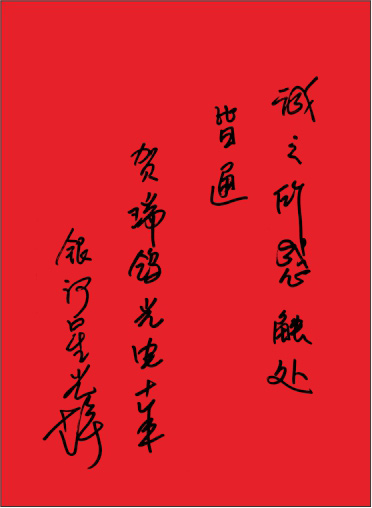 诚之所感触处
皆通
贺瑞鸽光电十年
银河星光辉